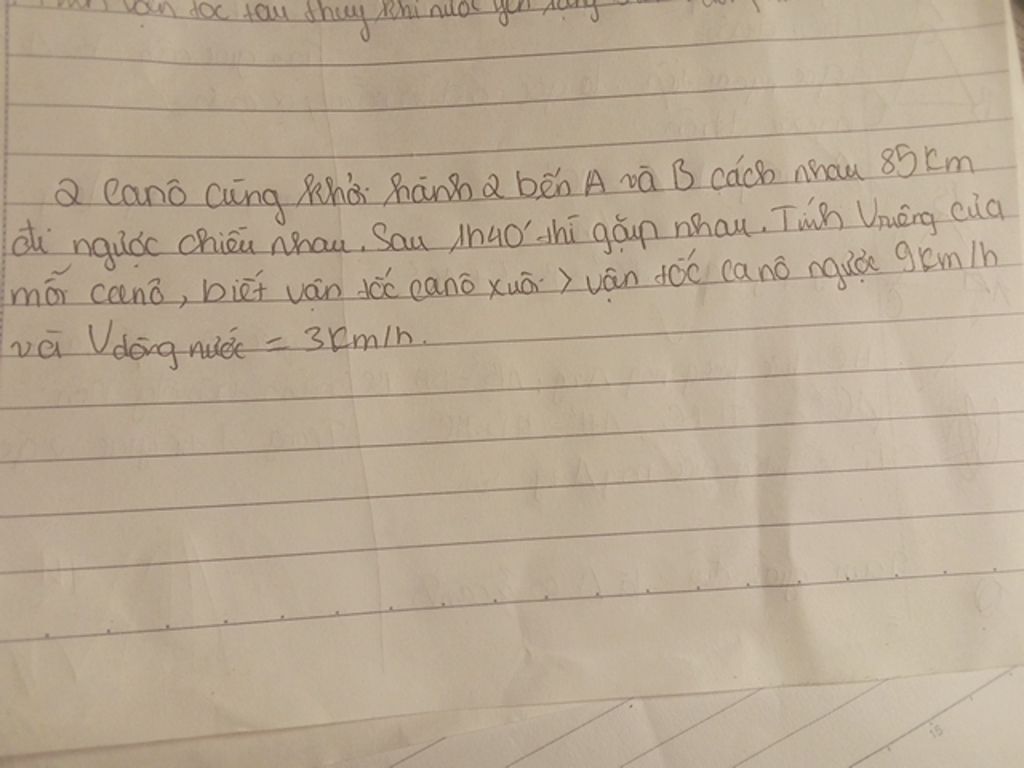 vận tốc tàu thuỷ khi nước yên lặng
2 canô cùng khởi hành 2 bến A và B cách nhau 85km
đi ngược chiều nhau. Sau 1h40' thì gặp nhau. Tính Vriêng của
mỗi canô, biết vận tốc canô xuôi > vận tốc canô ngược 9km/h
và Vdòng nước = 3km/h.
15